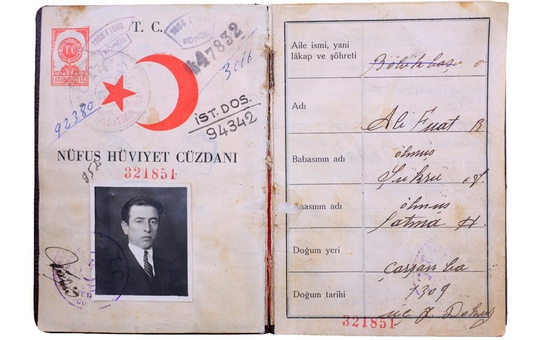 T. C.
447832
3666
92380
İST. DOS.
94342
NÜFUS HÜVİYET CÜZDANI
321851
952
Aile ismi, yani
lâkap ve şöhreti
Adı
Ali Fuat
Babasının adı
ölmüş
Şükrü
Anasının adı
ölmüş
Fatma
Doğum yeri
Çarşanba
Doğum tarihi
1309
321851